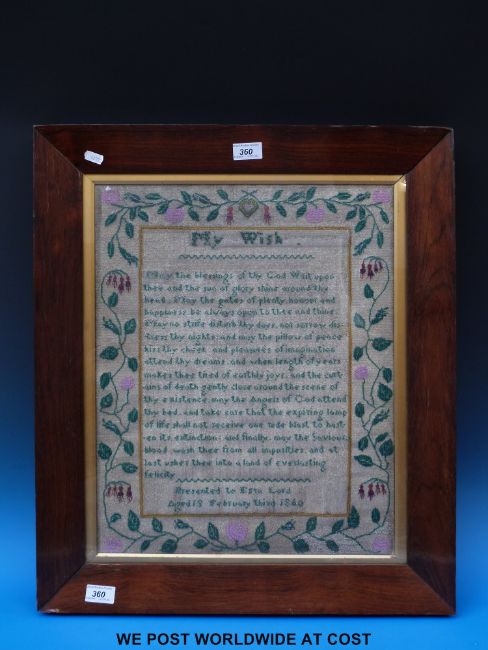 360
My Wish
May the blessings of thy God Wait upon
thee and the sun of glory shine around thy
head. May the gates of plenty honour and
happiness be always open to thee and thine.
May no strife disturb thy days, nor sorrow dis-
tress thy nights, and may the pillow of peace
kiss thy cheek and pleasures of imagination
attend thy dreams, and when length of years
makes thee tired of earthly joys, and the curt-
ains of death gently close around the scene of
thy existence, may the Angels of God attend
thy bed, and take care that the expiring lamp
of life shall not receive one rude blast to hast-
en its extinction; and finally, may the Saviours
blood wash thee from all impurities, and at
last usher thee into a land of everlasting
felicity
Presented to Lord
Aged 18 February third 1840
360
WE POST WORLDWIDE AT COST